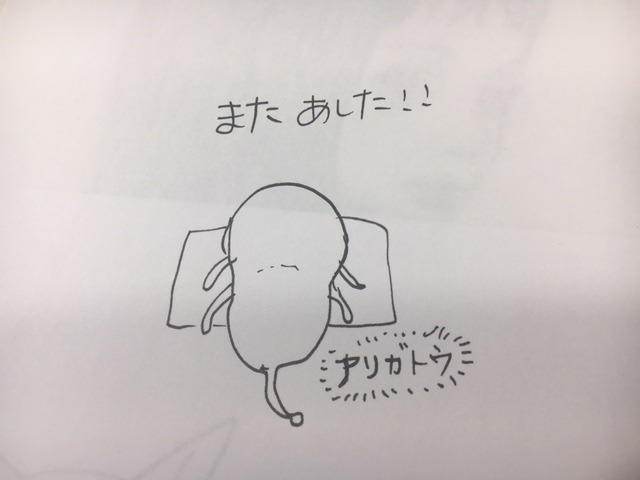 また あした!!
アリガトウ